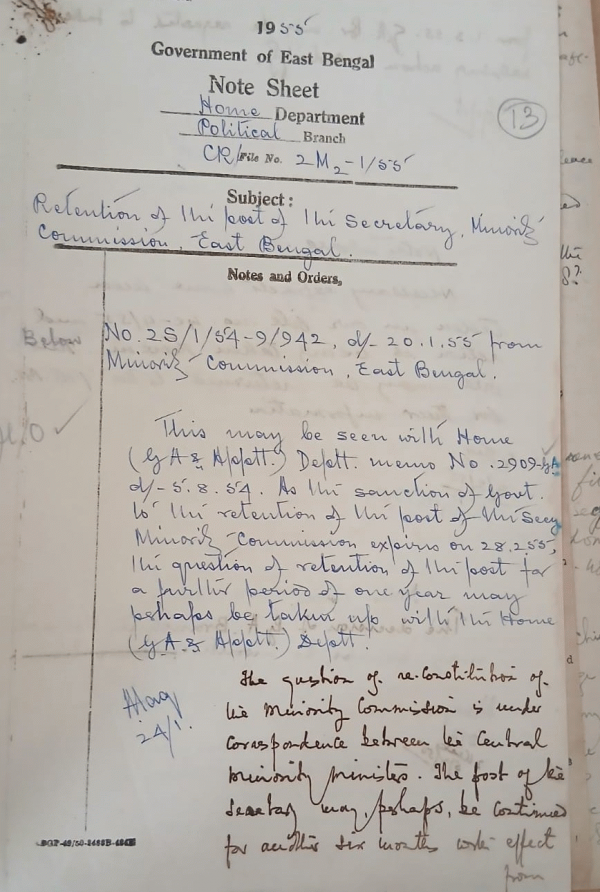 1955
Government of East Bengal
Note Sheet
Home Department
13
Political Branch
CR/File No. 2M2-1/55
Subject:
Retention of the post of the Secretary, Minority
Commission, East Bengal.
Notes and Orders,
Below
No. 2S/1/54-9/942, d/- 20.1.55 from
Minority Commission, East Bengal.
This may be seen with Home
(GA & Apptt.) Deptt. memo No. 2909-GA
d/- 5.8.54. As the sanction of Govt.
to the retention of the post of the Secy
Minority Commission expires on 28.2.55,
the question of retention of the post for
a further period of one year may
perhaps be taken up with the Home
(GA & Apptt.) Deptt.
24/1
The question of re-constitution of
the Minority Commission is under
correspondence between the Central
Minority Ministers. The post of the
Secretary may, perhaps, be continued
for another six months with effect
from